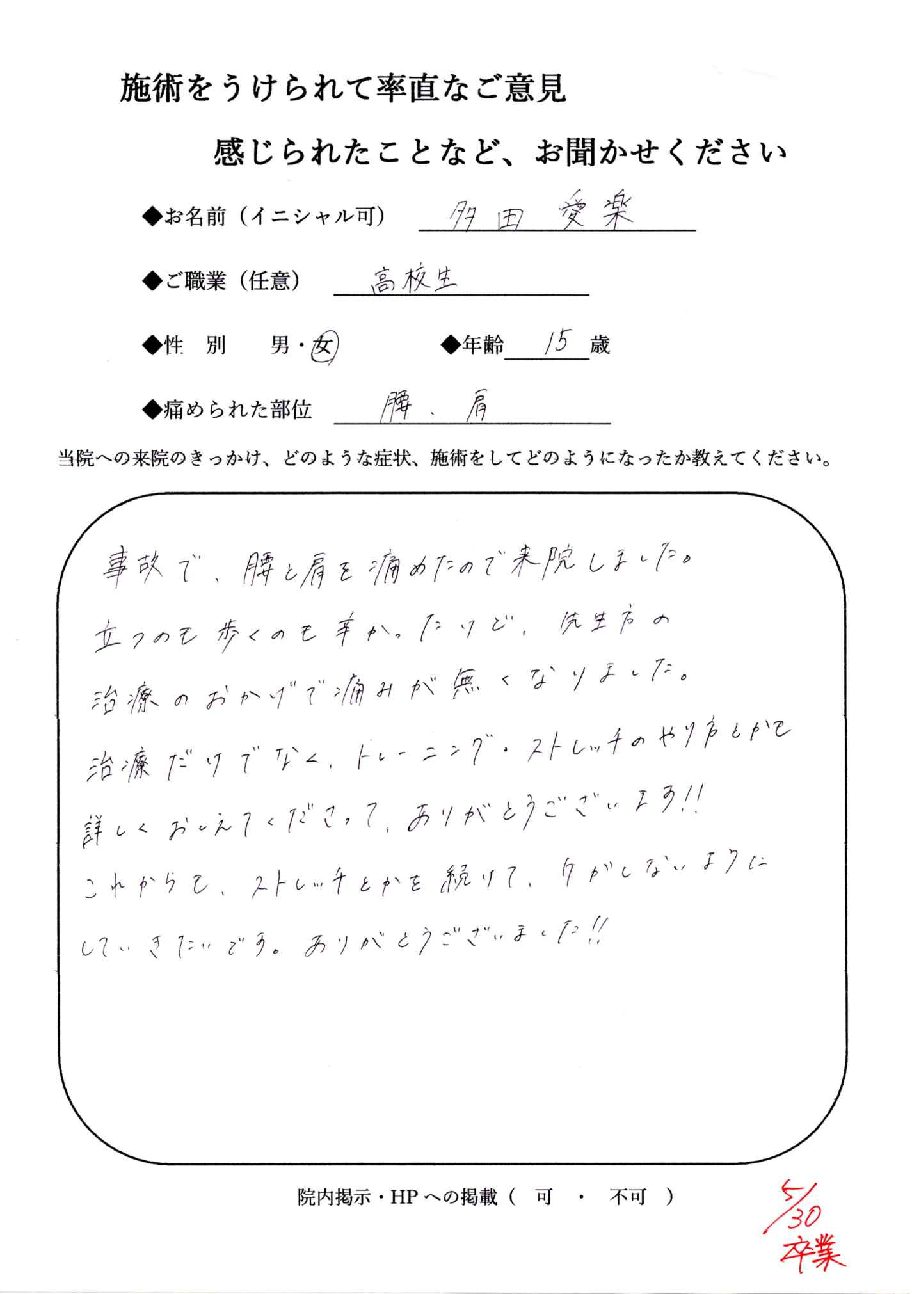 施術をうけられて率直なご意見
感じられたことなど、お聞かせください
◆お名前（イニシャル可） 多田 愛楽
◆ご職業（任意） 高校生
◆性 別 男・女 ◆年齢 15 歳
◆痛められた部位 腰、肩
当院への来院のきっかけ、どのような症状、施術をしてどのようになったか教えてください。
事故で、腰と肩を痛めたので来院しました。
立つのも歩くのも辛かったけど、先生方の
治療のおかげで痛みが無くなりました。
治療だけでなく、トレーニング・ストレッチのやり方とかも
詳しくおしえてくださって、ありがとうございます!!
これからも、ストレッチとかを続けて、ケガしないように
していきたいです。ありがとうございました!!
院内掲示・HPへの掲載（ 可 ・ 不可 ）
5/30
卒業